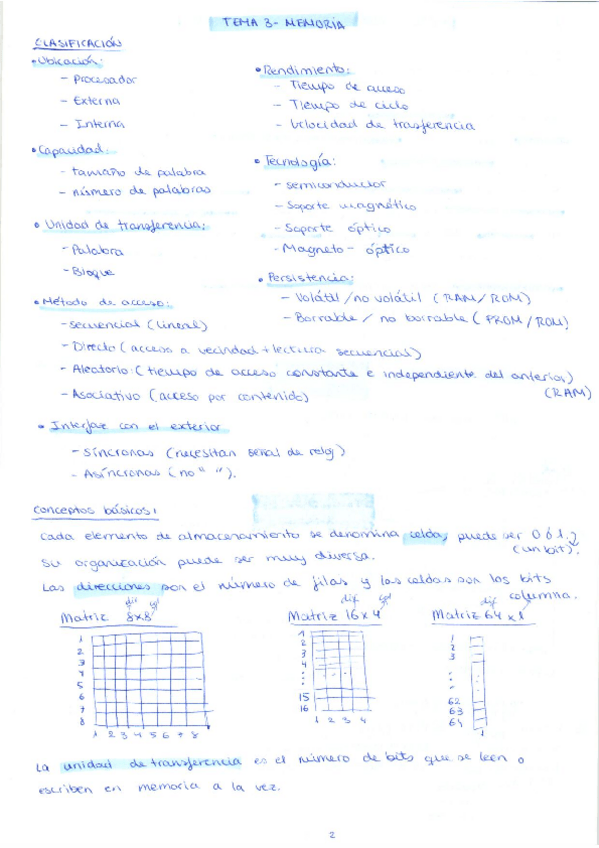 TEMA 3 - MEMORIA
CLASIFICACIÓN
• Ubicación:
- Procesador
- Externa
- Interna
• Capacidad:
- tamaño de palabra
- número de palabras
• Unidad de transferencia:
- Palabra
- Bloque
• Método de acceso:
- secuencial (lineal)
- Directo (acceso a vecindad + lectura secuencial)
- Aleatorio: (tiempo de acceso constante e independiente del anterior)
(RAM)
- Asociativo (acceso por contenido)
• Rendimiento:
- Tiempo de acceso
- Tiempo de ciclo
- Velocidad de trasferencia
• Tecnología:
- semiconductor
- Soporte magnético
- Soporte óptico
- Magneto - óptico
• Persistencia:
- Volátil / no volátil (RAM / ROM)
- Borrable / no borrable (PROM / ROM)
• Interfaz con el exterior
- Síncronas (necesitan señal de reloj)
- Asíncronas (no " ").
Conceptos básicos:
Cada elemento de almacenamiento se denomina celda, puede ser 0 ó 1.
(un bit).
Su organización puede ser muy diversa.
Las direcciones son el número de filas y las celdas son los bits
columna.
dir cel
Matriz 8x8
1
2
3
4
5
6
7
8
1 2 3 4 5 6 7 8
dir cel
Matriz 16 x 4
1
2
3
4
:
:
15
16
1 2 3 4
dir
Matriz 64 x 1
1
2
3
:
:
62
63
64
1
La unidad de transferencia es el número de bits que se leen o
escriben en memoria a la vez.
2